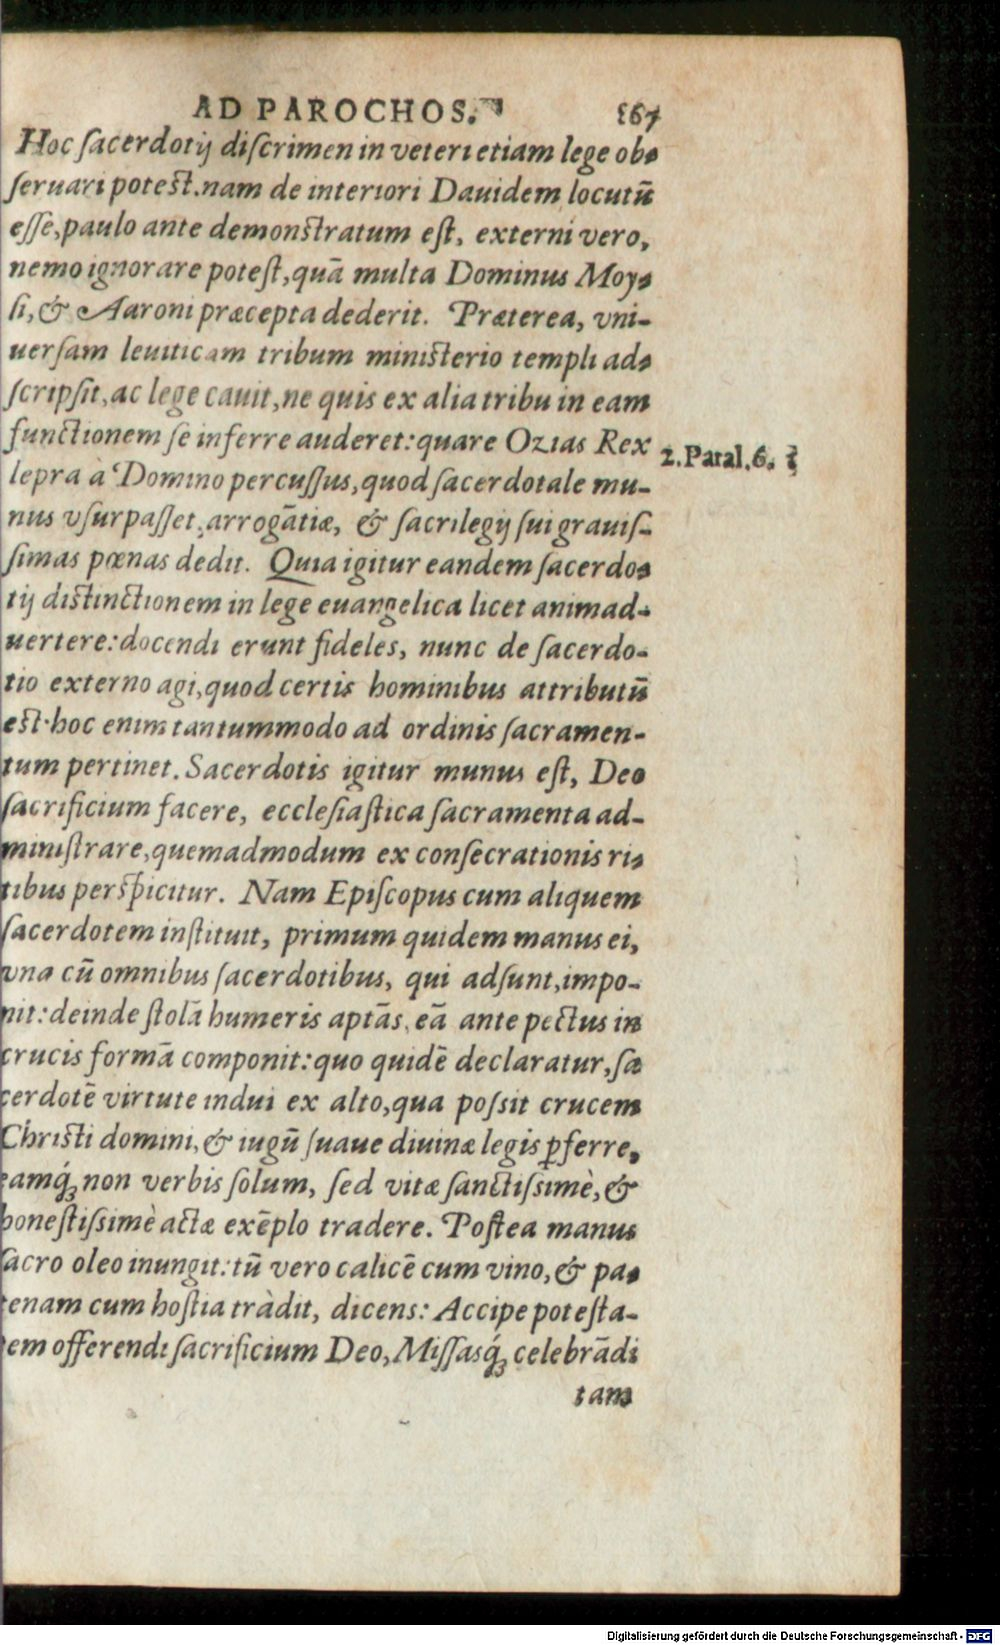 AD PAROCHOS.
Hoc sacerdotij discrimen in veteri etiam lege ob-
seruari potest. nam de interiori Dauidem locutũ
esse, paulo ante demonstratum est, externi vero,
nemo ignorare potest, quã multa Dominus Moy-
si, & Aaroni præcepta dederit. Præterea, vni-
uersam leuiticam tribum ministerio templi ad-
scripsit, ac lege cauit, ne quis ex alia tribu in eam
functionem se inferre auderet: quare Ozias Rex
2. Paral. 6.
lepra à Domino percussus, quod sacerdotale mu-
nus vsurpasset, arrogãtiæ, & sacrilegij sui grauis-
simas pœnas dedit. Quia igitur eandem sacerdo-
tij distinctionem in lege euangelica licet animad-
uertere: docendi erunt fideles, nunc de sacerdo-
tio externo agi, quod certis hominibus attributũ
est. hoc enim tantummodo ad ordinis sacramen-
tum pertinet. Sacerdotis igitur munus est, Deo
sacrificium facere, ecclesiastica sacramenta ad-
ministrare, quemadmodum ex consecrationis ri-
tibus perspicitur. Nam Episcopus cum aliquem
sacerdotem instituit, primum quidem manus ei,
vna cũ omnibus sacerdotibus, qui adsunt, impo-
nit: deinde stolã humeris aptãs, eã ante pectus in
crucis formã componit: quo quidẽ declaratur, sa
cerdotẽ virtute indui ex alto, qua possit crucem
Christi domini, & iugũ suaue diuinæ legis ꝑferre,
eamq́ꝫ non verbis solum, sed vitæ sanctissimè, &
honestissimè actæ exẽplo tradere. Postea manus
sacro oleo inungit: tũ vero calicẽ cum vino, & pa-
tenam cum hostia tràdit, dicens: Accipe potesta-
tem offerendi sacrificium Deo, Missasq́ꝫ celebrãdi
tam
Digitalisierung gefördert durch die Deutsche Forschungsgemeinschaft - DFG